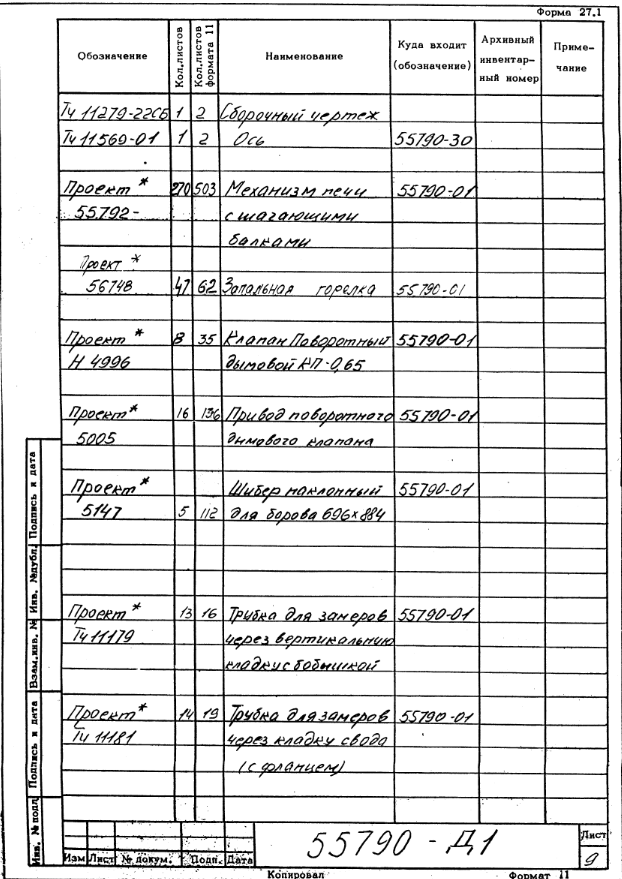 Форма 27.1
Обозначение Кол.листов Кол.листов формата 11 Наименование Куда входит (обозначение) Архивный инвентар- ный номер Приме- чание
Тч 11279-22СБ 1 2 Сборочный чертеж
Тч 11569-01 1 2 Ось 55790-30
Проект * 270 503 Механизм печи 55790-01
55792- с шагающими
балками
Проект *
56748 47 62 Запальная горелка 55790-01
Проект * 8 35 Клапан Поворотный 55790-01
Н 4996 дымовой КП-0,65
Проект * 16 136 Привод поворотного 55790-01
5005 дымового клапана
Проект * Шибер наклонный 55790-01
5147 5 112 для борова 696×884
Проект * 13 16 Трубка для замеров 55790-01
Тч 11179 через вертикальную
кладку с бобышкой
Проект * 14 19 Трубка для замеров 55790-01
Тч 11181 через кладку свода
(с фланцем)
Инв. № подл Подпись и дата Взам.инв. № Инв. №дубл. Подпись и дата
55790 - Д1 Лист
Изм Лист № докум. Подп. Дата 9
Копировал Формат 11